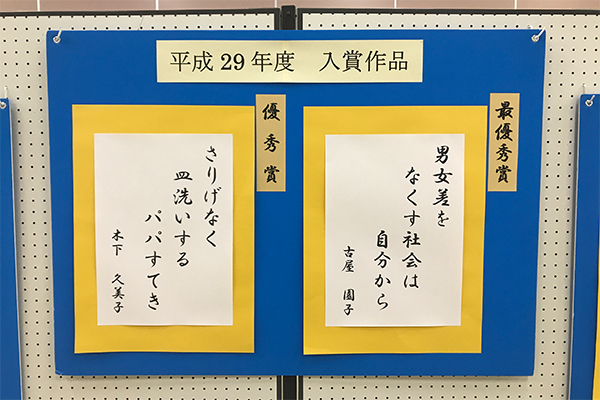 平成29年度　入賞作品
最優秀賞
男女差を
なくす社会は
自分から
古屋　園子
優秀賞
さりげなく
皿洗いする
パパすてき
木下　久美子